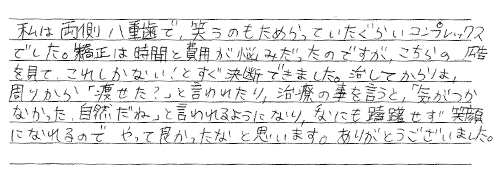 私は両側八重歯で、笑うのもためらっていたぐらいコンプレックス
でした。矯正は時間と費用が悩みだったのですが、こちらの広告
を見て、これしかない！とすぐ決断できました。治してからは、
周りから「痩せた？」と言われたり、治療の事を言うと、「気がつか
なかった、自然だね」と言われるようになり、なにも躊躇せず笑顔
になれるのでやって良かったなと思います。ありがとうございました。